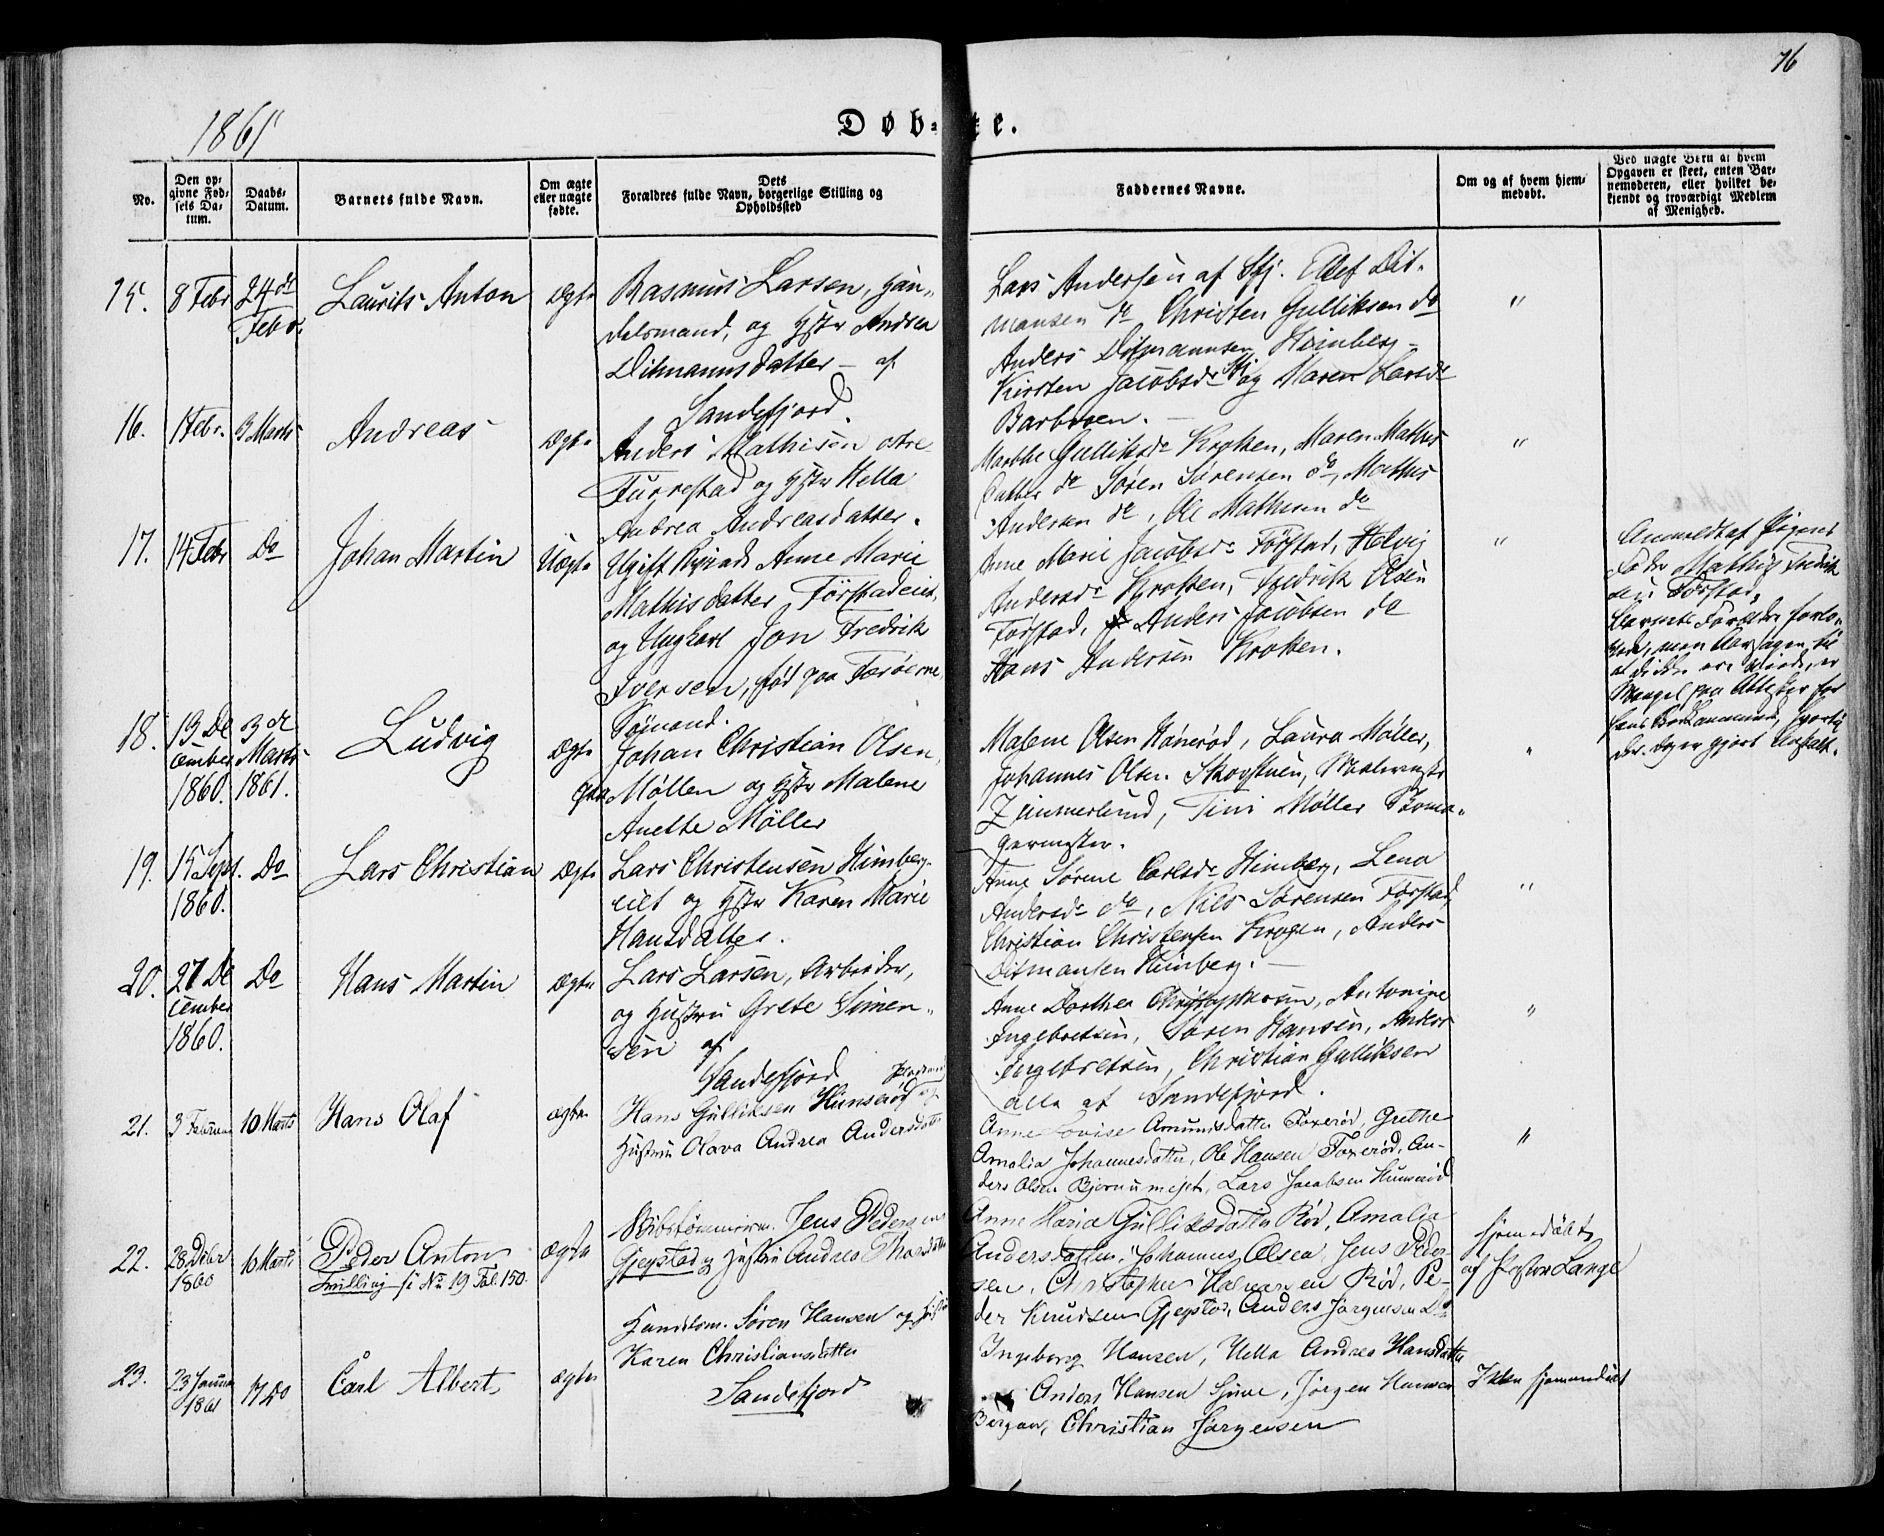 76
1861
Døb-te.
No.
Den op-
givne Fød-
sels Da-
tum.
Daabs-
Datum.
Barnets fulde Navn.
Om ægte
eller uægte
fødte.
Dets
Forældres fulde Navn, borgerlige Stilling og
Opholdssted
Faddernes Navne.
Om og af hvem hjem-
medøbt.
Ved uægte Børn af hvem
Opgaven er skeet, enten Bar-
nemoderen, eller hvilket be-
kjendt og troværdigt Medlem
af Menighed.
15. 8 Febr 24de
Febr.
Laurits Anton
Ægte
Rasmus Larsen, Han-
delsmand, og Hstr Andrea
Ditmannsdatter – af
Sandefjord.
Lars Andersen af Sfj. Ellef Dit-
mansen do Christen Gulliksen do
Anders Ditmannsen Himberg –
Kirsten Jacobsdr Sfj og Maren Larsdr
"
16. 1 Febr. 3 Marts
Andreas
Ægte
Anders Mathisen østre
Furrestad og Hstr Hella
Andrea Andreasdatter.
Marthe Gulliksdr Krokken, Maren Mathis
datter do Søren Sørensen do, Mathis
Andersen do, Ole Mathisen do
"
17. 14 Febr Do
Johan Martin
Uægte
Ugift Anne Marie
Mathisdatter Førstadeiet,
og Ungkarl Jon Fredrik
Iversen, fød paa Færøerne,
Sømand.
Anne Marie Jacobsdr Førstad, Helvig
Andersdr Krokken, Fredrik Olsen
Førstad, Anders Jacobsen do
Hans Andersen Krokken.
"
Anmeldt af Pigens
Fader Mathis Fredrik
sen Førstad.
Barnets Forældre forlo-
vede, men Aarsagen til
at de ikke ere viede, er
Mangel paa Attester for
18. 13 De
cember
1860.
3de
Marts
1861.
Ludvig
Ægte
Johan Christian Olsen,
Møllen og Hstr Malene
Anette Møller
Malene Olsen Hønerød, Laura Møller,
Johannes Olsen Skogstuen, Malermstr
Zimmerlund, Tini Møller Skoma-
germester.
19. 15 Sept.
1860.
Do
Lars Christian
Ægte
Lars Christensen Himberg-
eiet og Hstr Karen Marie
Hansdatter.
Anne Sørine Carlsdr Himberg, Lena
Andersdr do, Niels Sørensen Førstad,
Christian Christensen Krogen, Anders
Ditmansen Himberg. –
"
20. 27 De
cember
1860.
Do
Hans Martin
Ægte
Lars Larsen, Arbeider,
og Hustru Grete Simen-
sen af
Sandefjord
Anne Dorthea Christophersen, Antonine
Ingebretsen, Søren Hansen, Anders
Ingebretsen, Christian Gulliksen
alle af Sandefjord.
"
21. 3 Februar 10 Marts
Hans Olaf
ægte
Hans Gulliksen Hunserød og
Hustru Olava Andrea Andersdatter
Anne Lovise Amundsdatter Foxerød, Grethe
Amalia Johannesdatter, Ole Hansen Foxerød, An-
ders Olsen Bjerrumejet, Lars Jacobsen Hunserød
"
22. 28 Dcbr
1860
10 Marts
Peder Anton
Tvilling se No 19 Fol. 150.
ægte
Skibstømmerm. Jens Pedersen
Gjegstad og Hustru Andrea Thorsdatter
Anne Maria Gulliksdatter Rød, Amalia
Andersdatter, Johannes Olsen, Jens Peder-
sen, Christopher Halvorsen Rød, Pe-
der Knudsen Gjegstad, Anders Jørgensen Do
Hjemedøbt
af Pastor Lange
23. 23 Januar
1861
17 Do
Carl Albert
ægte
Handelsm. Søren Hansen og Hustru
Karen Christiansdatter
Sandefjord
Ingeborg Hansen, Hella Andrea Hansdatter
Anders Hansen, Jørgen Hansen
Bergan, Christian Jørgensen
Ikke hjemmedøbt